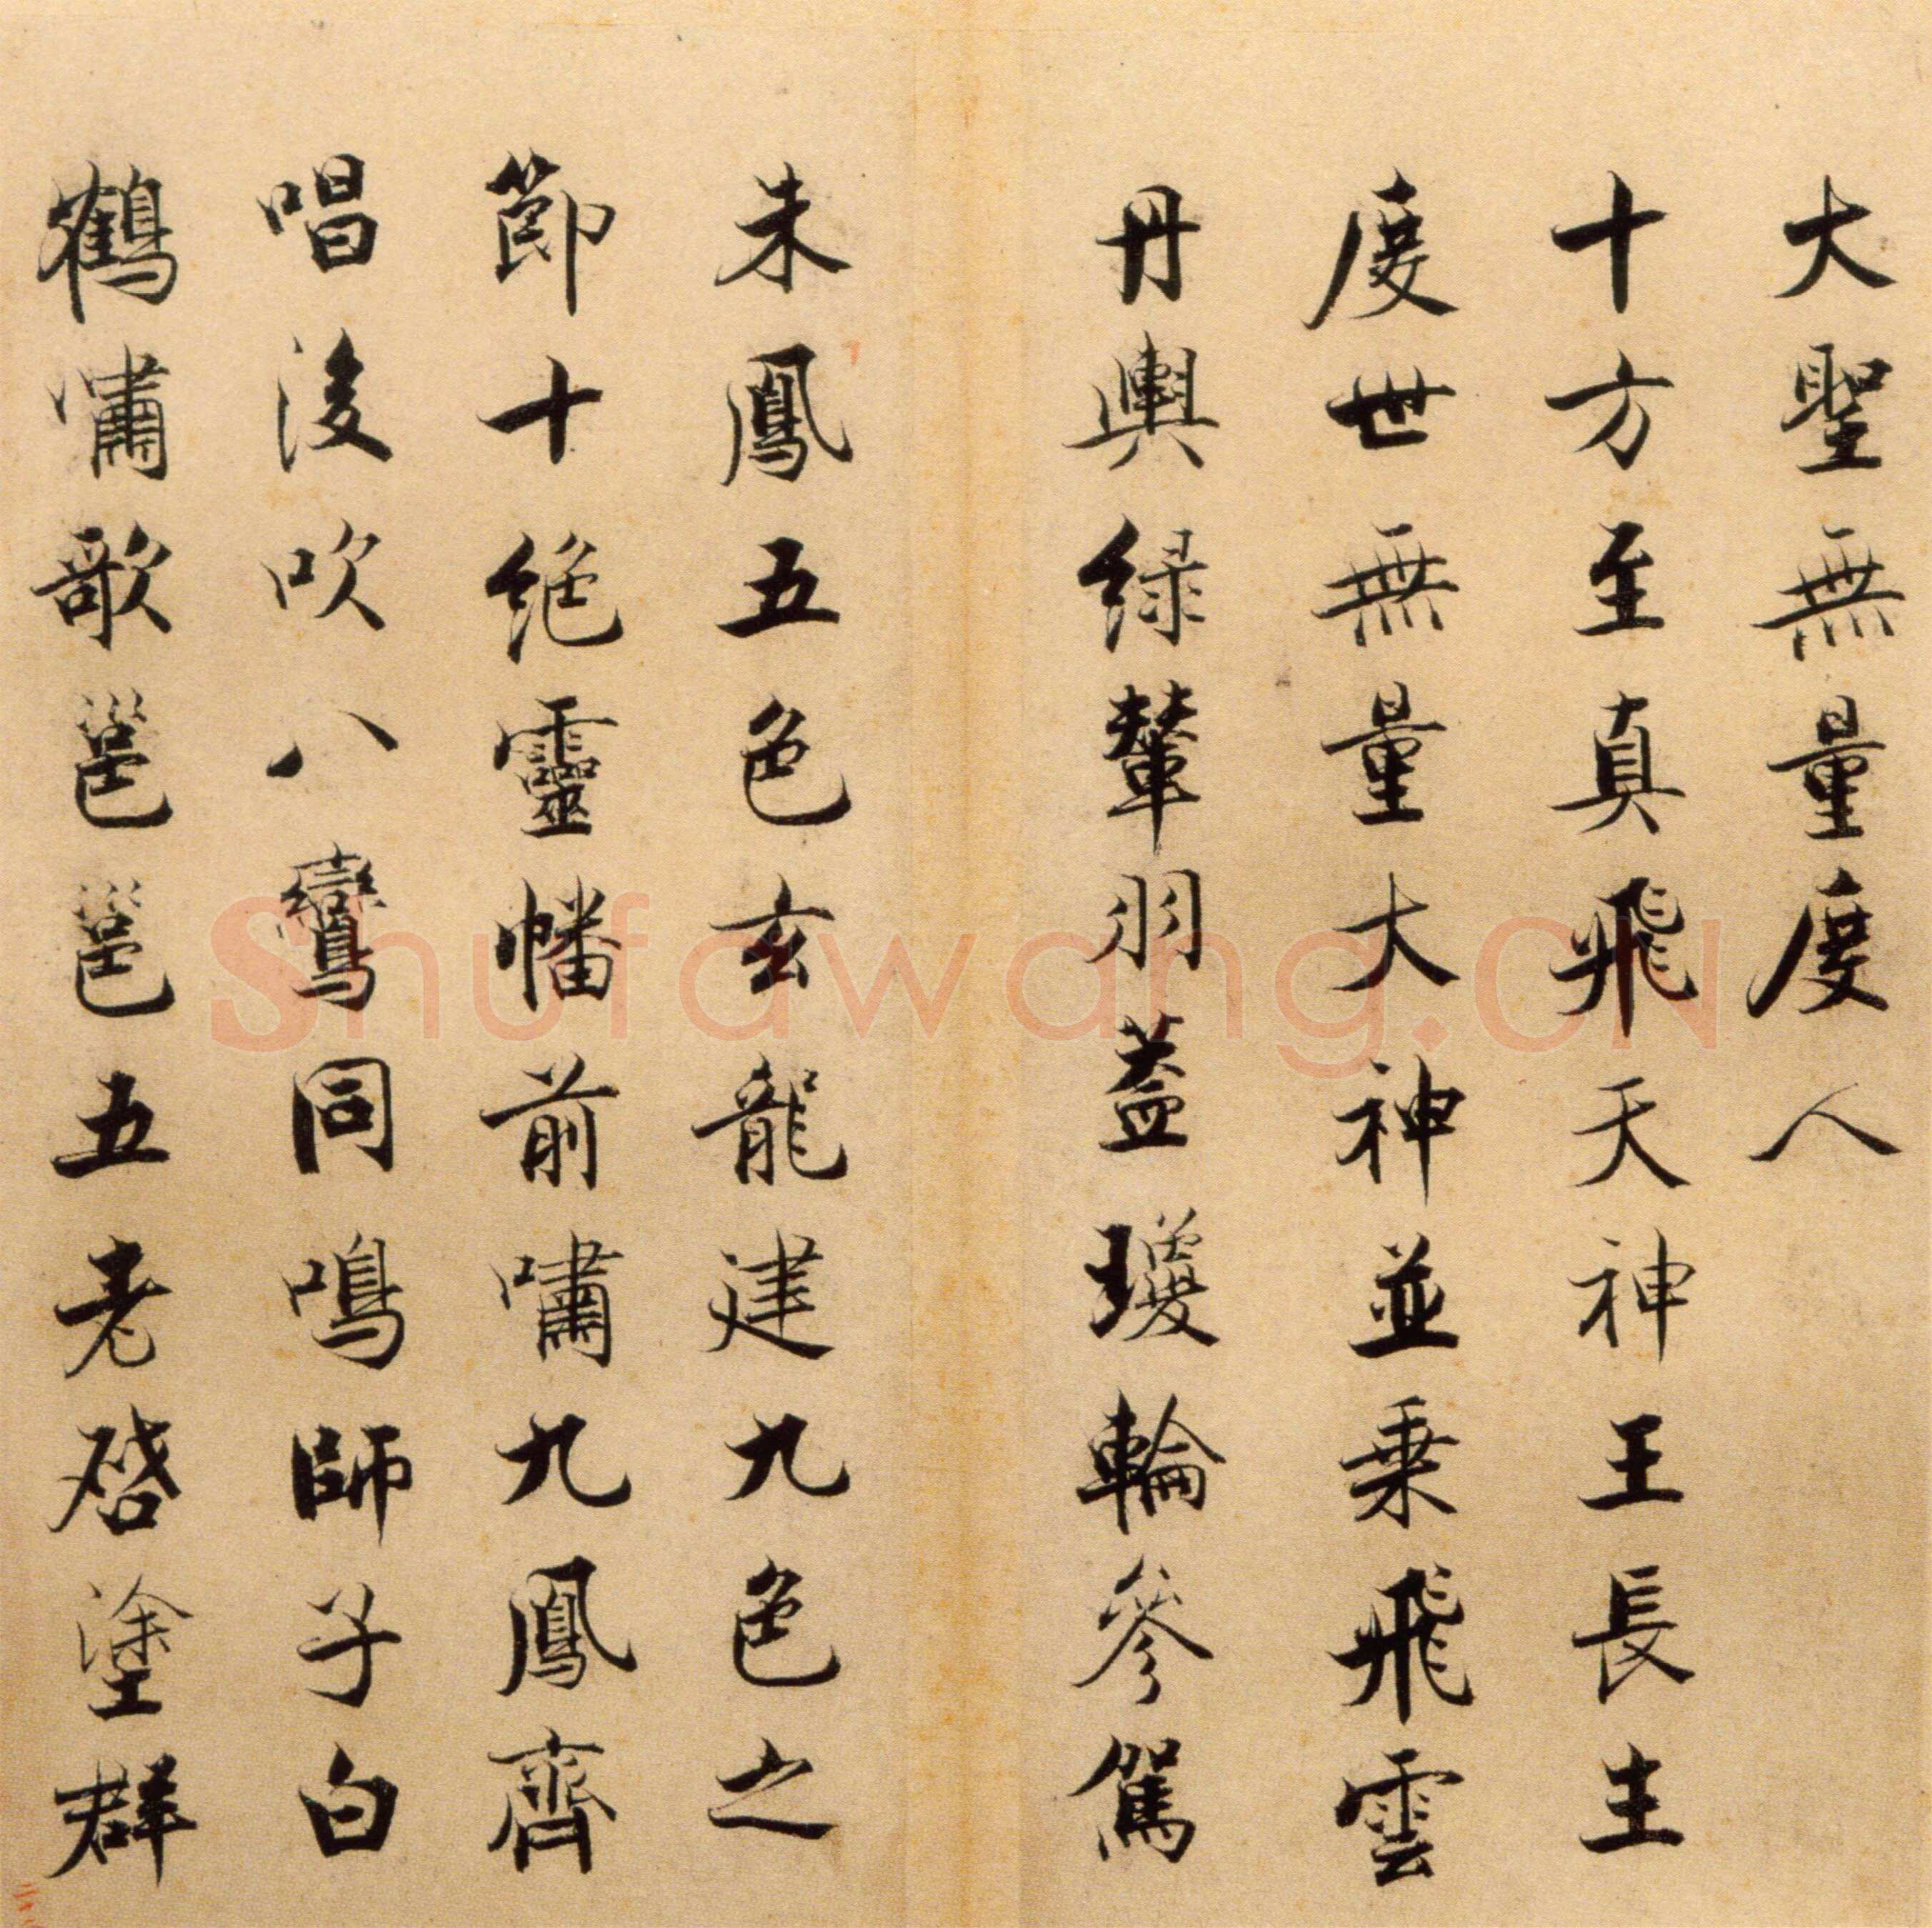 大聖無量度人
十方至真飛天神王長主
度世無量大神並乗飛雲
丹輿緑輦羽蓋瓊輪參駕
朱鳳五色玄龍建九色之
節十絶靈幡前嘯九鳳齊
唱後吹八鸞同鳴師子白
鶴嘯歌邕邕五老啓塗群
Shufawang.CN